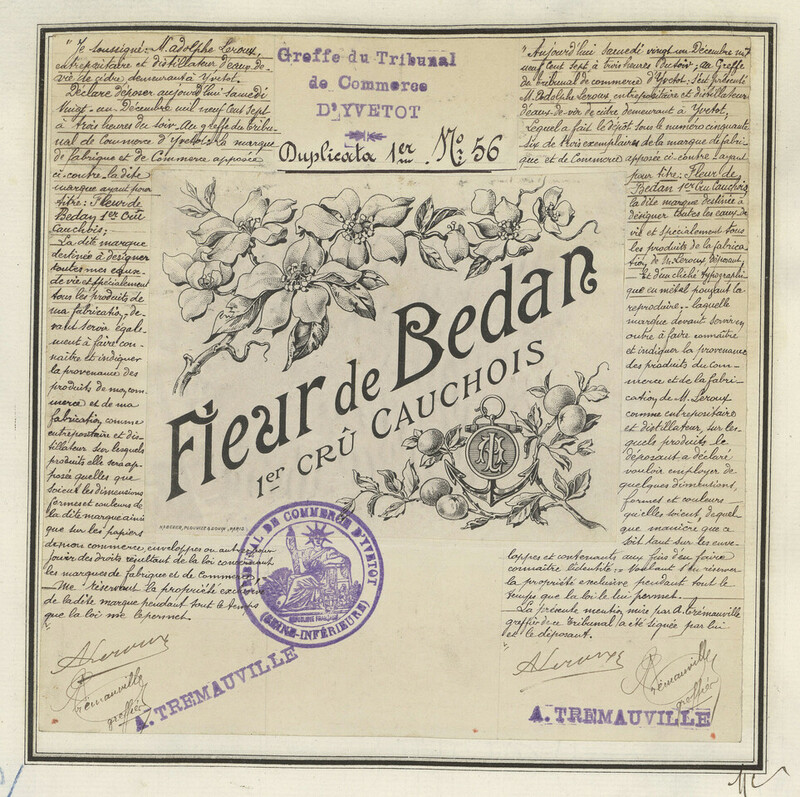 "Je soussigné: M. Adolphe Leroux,
entrepositaire et distillateur d'eaux-de-
vie de cidre demeurant à Yvetot.
Déclare déposer aujourd'hui samedi
vingt-un Décembre mil neuf cent sept
à trois heures du soir. Au greffe du Tribu-
nal de Commerce d'Yvetot la marque
de fabrique et de Commerce apposée
ci-contre la dite
marque ayant pour
titre: Fleur de
Bedan 1er Crû
Cauchois;
La dite marque
destinée à désigner
toutes mes eaux-
de-vie et spécialement
tous les produits de
ma fabrication, de-
vant servir égale-
ment à faire con-
naître et indiquer
la provenance des
produits de mon com-
merce et de ma
fabrication comme
entrepositaire et dis-
tillateur sur lesquels
produits elle sera ap-
posée quelles que
soient les dimensions
formes et couleurs de
la dite marque ainsi
que sur les papiers
de mon commerce, enveloppes ou autres pour
jouir des droits résultant de la loi concernant
les marques de fabrique et de Commerce
Me réservant la propriété exclusive
de la dite marque pendant tout le temps
que la loi me le permet.
ALeroux
Trémauville
greffier
A. TREMAUVILLE
Greffe du Tribunal
de Commerce
D'YVETOT
Duplicata 1er No: 56
Fleur de Bedan
1er CRÛ CAUCHOIS
AL
TRIBUNAL DE COMMERCE D'YVETOT
(SEINE-INFÉRIEURE)
"Aujourd'hui Samedi vingt un Décembre mil
neuf cent sept à trois heures du soir; au Greffe
du Tribunal de commerce d'Yvetot; s'est présenté
M. Adolphe Leroux entrepositaire et distillateur
d'eaux-de-vie de cidre demeurant à Yvetot,
Lequel a fait le dépôt sous le numéro cinquante
six de trois exemplaires de la marque de fabri-
que et de Commerce apposée ci-contre ayant
pour titre: Fleur de
Bedan 1er Crû Cauchois,
la dite marque destinée à
désigner toutes les eaux-de
vie et spécialement tous
les produits de la fabrica-
tion, de M. Leroux déposant,
Et d'un cliché typographi-
que en métal pouvant la
reproduire. laquelle
marque devant servir en
outre à faire connaître
et indiquer la provenance
des produits du com-
merce et de la fabri-
cation, de M. Leroux
comme entrepositaire
et distillateur, sur les-
quels produits le
déposant a déclaré
vouloir employer de
quelques dimensions,
formes et couleurs
qu'elles soient, de quel-
que manière que ce
soit tant sur les enve-
loppes et contenants aux fins d'en faire
connaître l'identité; voulant s'en réserver
la propriété exclusive pendant tout le
temps que la loi le lui permet.
La présente mention mise par A. Trémauville
greffier de ce Tribunal a été signée par lui
et le déposant.
ALeroux
Trémauville
greffier
A. TREMAUVILLE